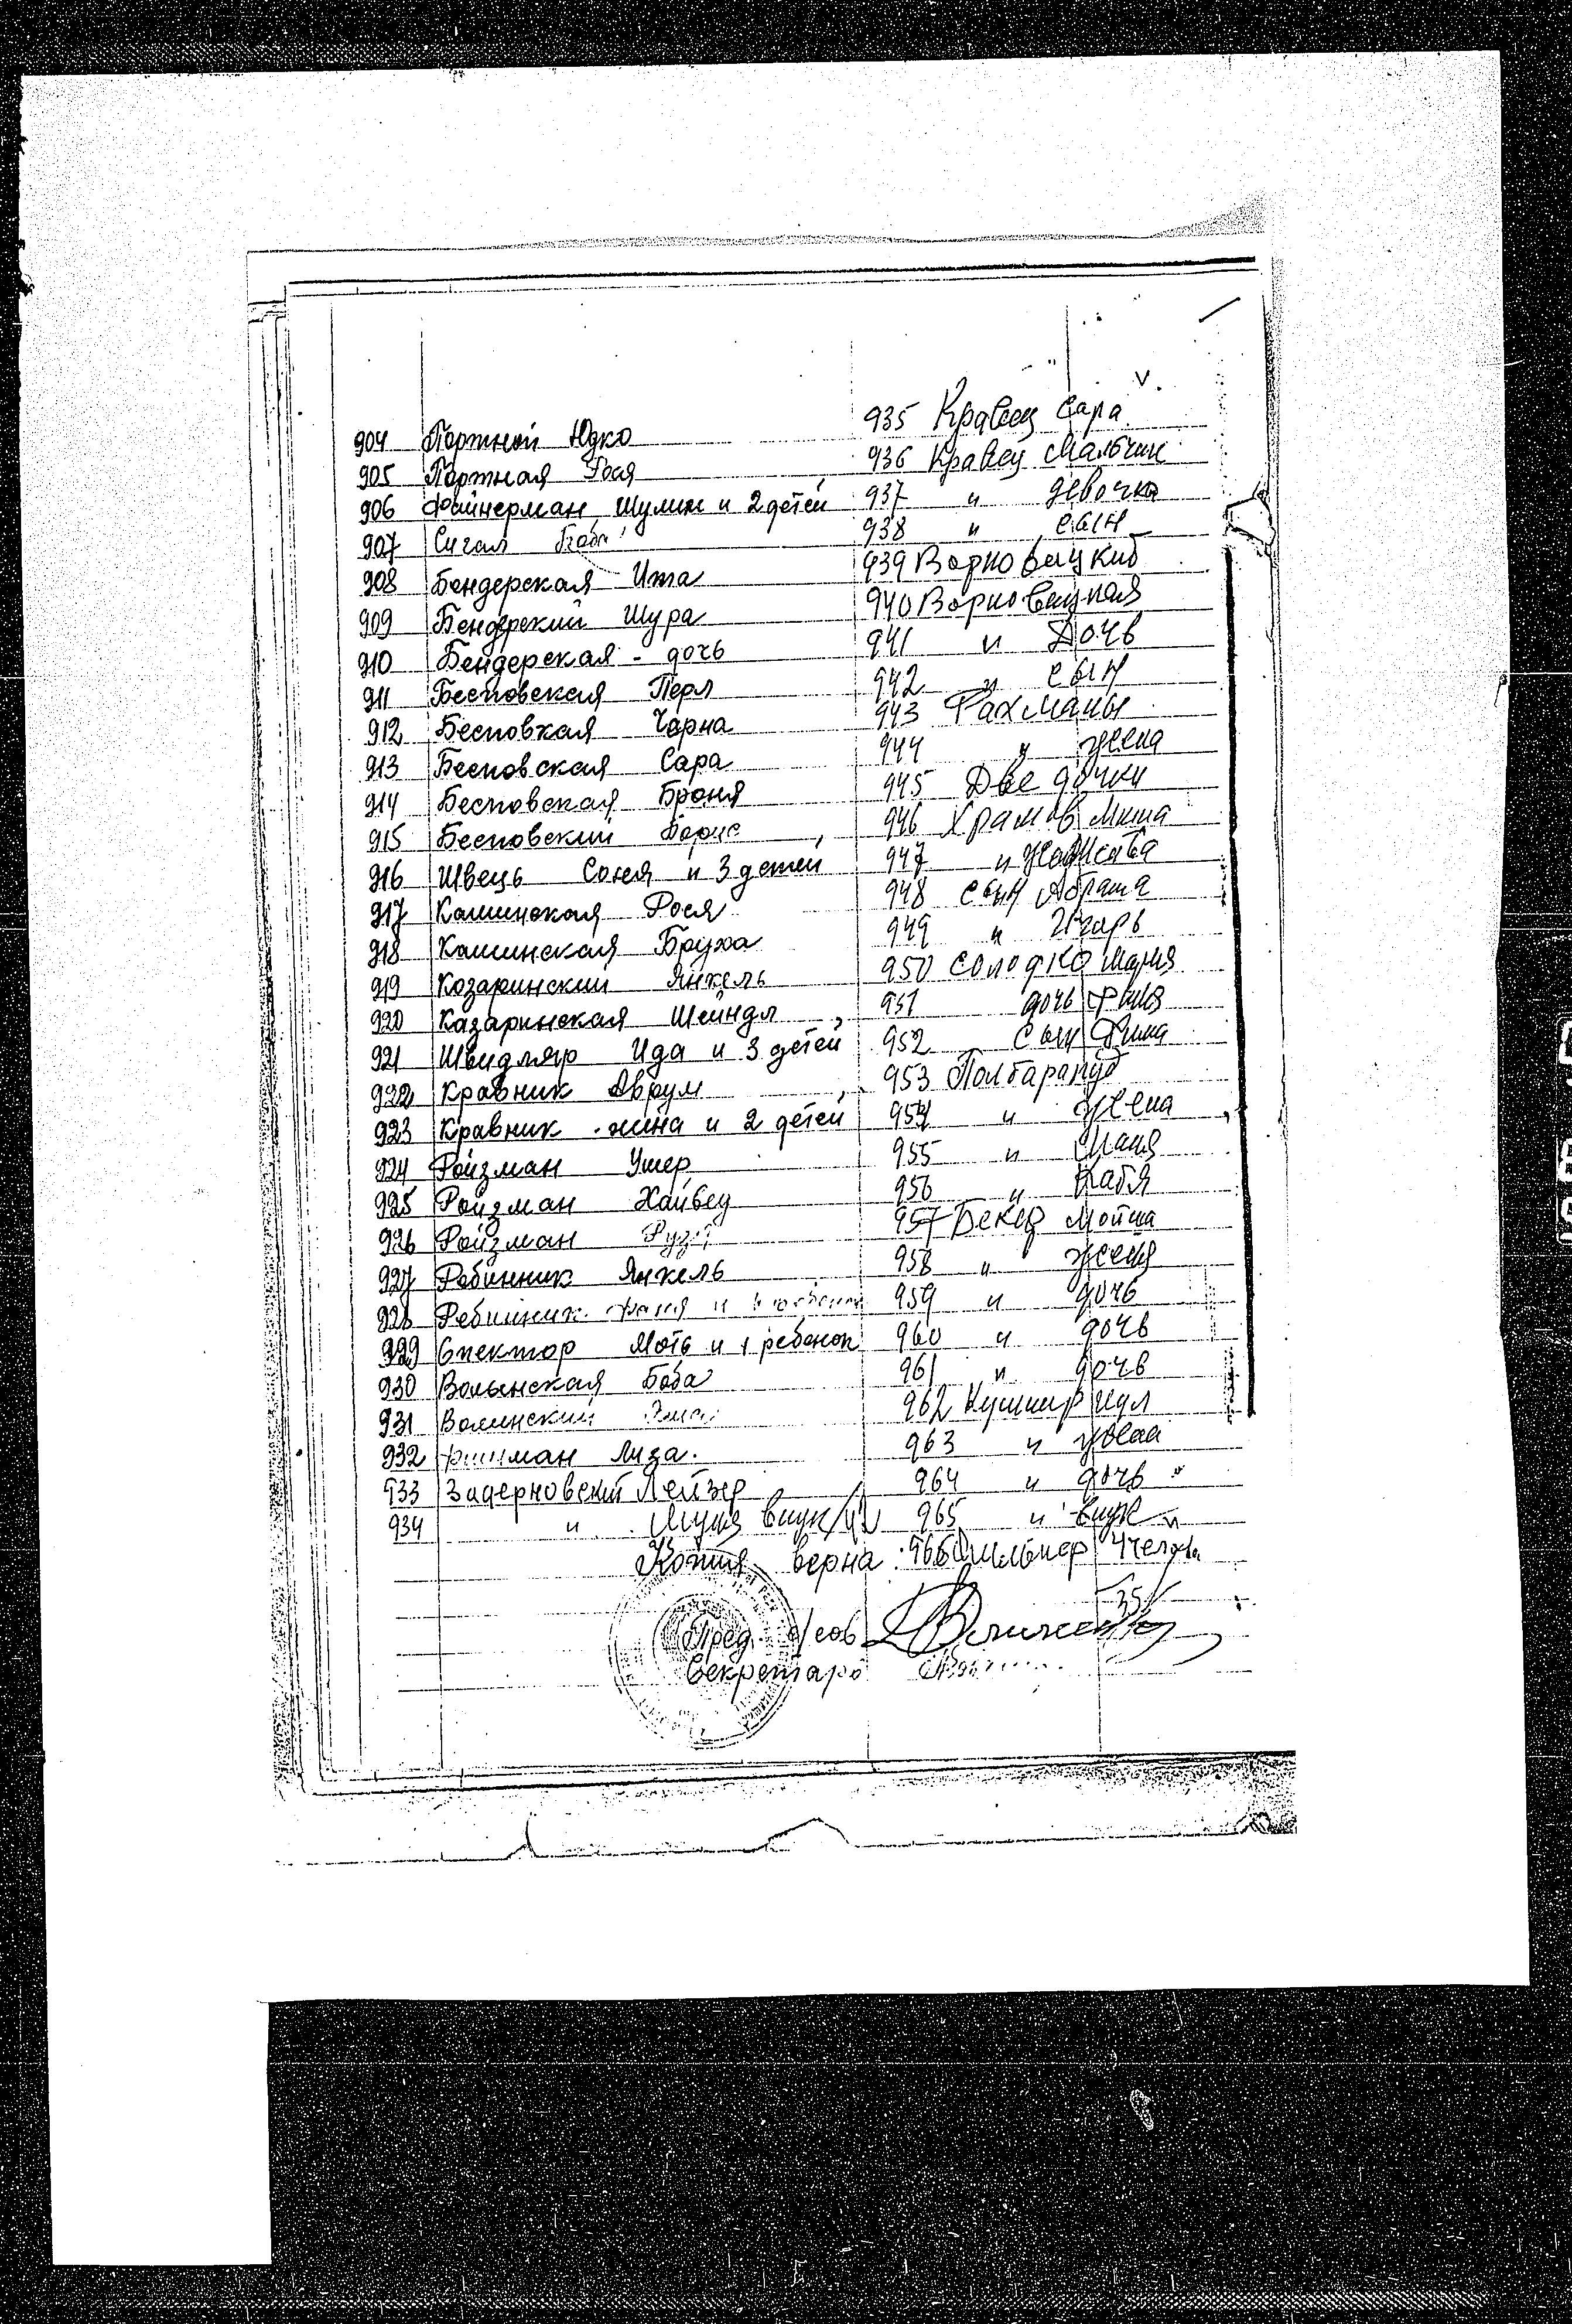 904 Портной Юдко
905 Портная Рося
906 Файнерман Шулим и 2 детей
907 Сигал
908 Бендерская Ита
909 Бендерский Шура
910 Бендерская - дочь
911 Бесповская Перл
912 Бесповкая Чарна
913 Бесповская Сара
914 Бесповская Броня
915 Бесповский Борис
916 Швець Соня и 3 детей
917 Кашинская Рося
918 Кашинская Бруха
919 Козаринский Янкель
920 Казаринская Шейндл
921 Швидляр Ида и 3 детей
922 Кравник Аврум
923 Кравник жина и 2 детей
924 Ройзман Ушер
925 Ройзман
926 Ройзман
927 Ребинник Янкель
928 Ребинник
929 Спектор Моть и 1 ребенок
930 Волынская Боба
931 Волинский
932 Лиза.
933 Задерновский Лейзер
934 " внук
935 Кравец Сара
936 Кравец Мальчик
937 " девочка
938 " сын
939 Варновицкий
940 Варновицкая
941 " Дочь
942 " сын
943 Рахманы
944 " жена
945 Две дочки
946 Храмов Миша
947 "
948 сын Абраша
949 " Игарь
950 Солодко Маня
951 дочь Фаня
952 Сын Дима
953
954 " жена
955 " Маня
956 " Катя
957 Бекер Мойша
958 " жена
959 " дочь
960 " дочь
961 " дочь
962 Кушнир Идл
963 "
964 " дочь "
965 " внук "
Копия верна: 966 Мильнер 4 чел
Пред. с/сов
Секретарь